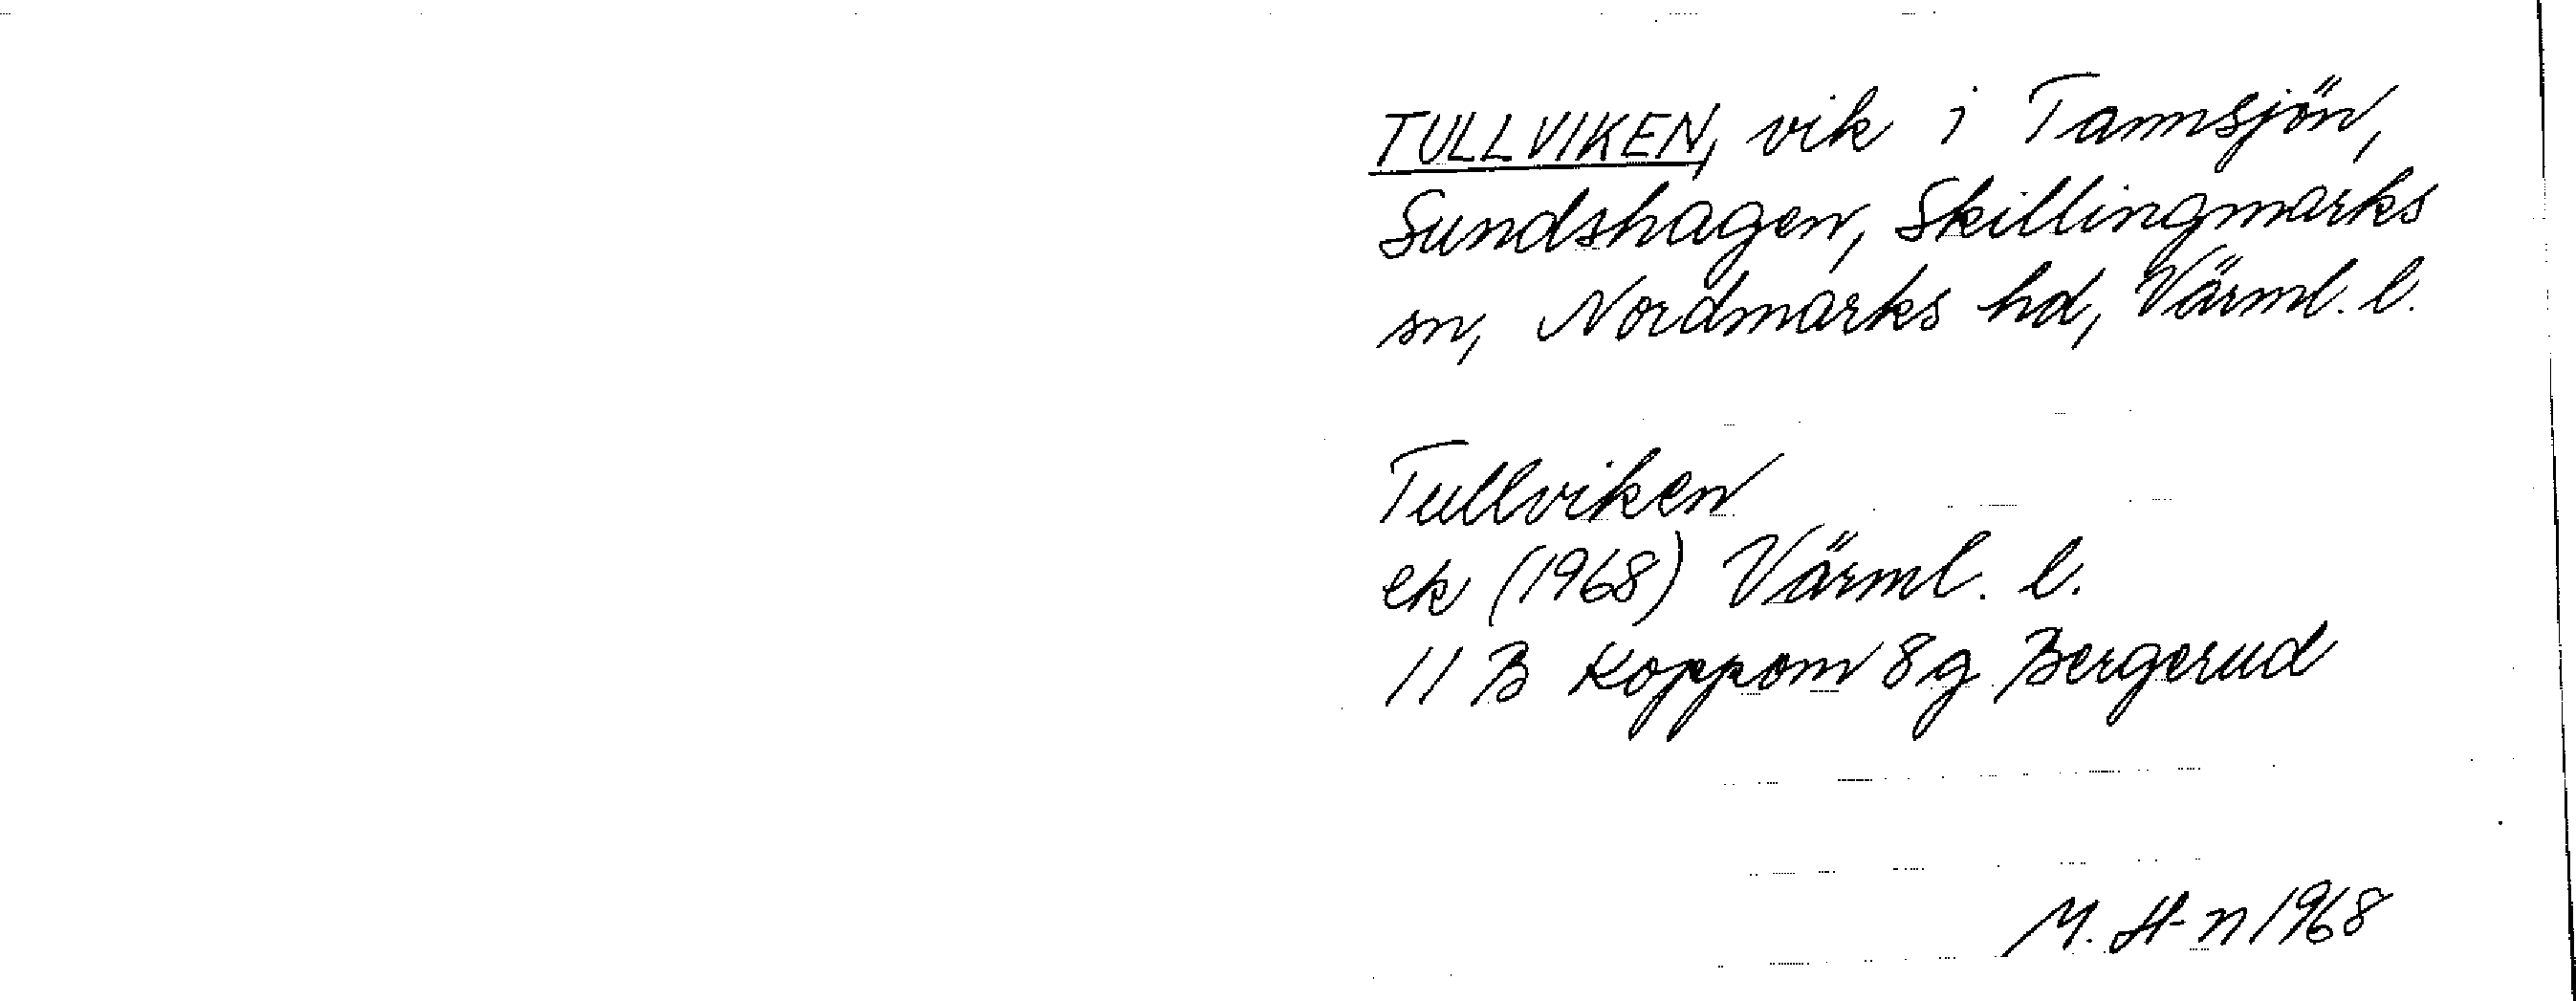 TULLVIKEN, vik i Tannsjön,
Sundshagen, Skillingmarks
sn, Nordmarks hd, Värml. l.
Tullviken
ek (1968) Värml. l.
11 B Koppom 8g Bergerud
M. H-n 1968